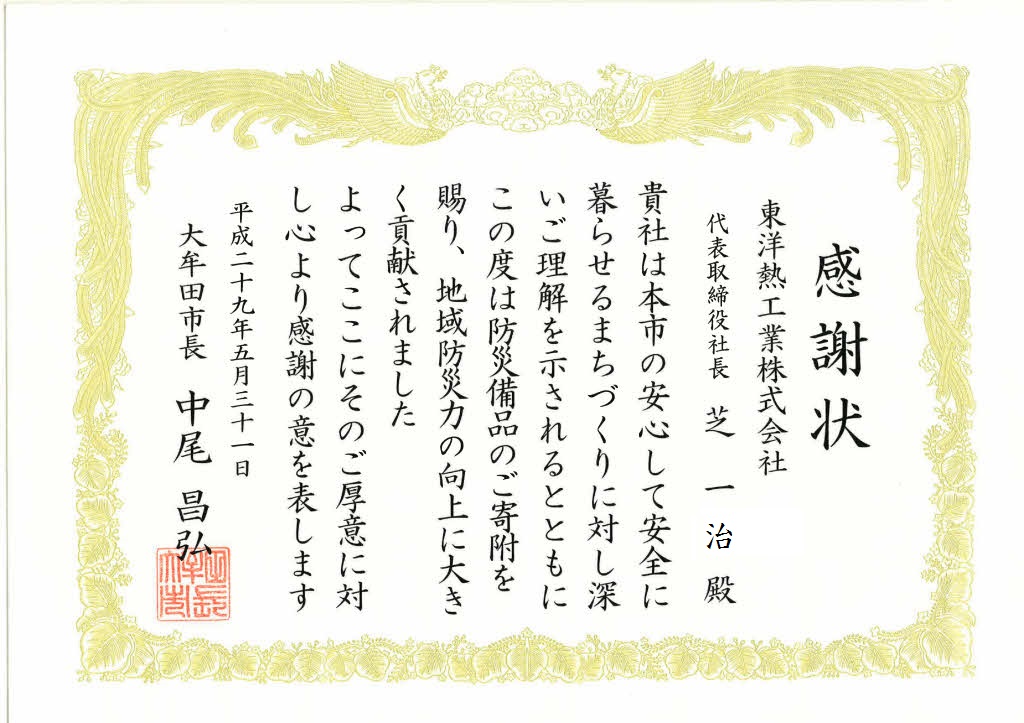 感謝状
東洋熱工業株式会社
代表取締役社長 芝 一 治 殿
貴社は本市の安心して安全に
暮らせるまちづくりに対し深
いご理解を示されるとともに
この度は防災備品のご寄附を
賜り、地域防災力の向上に大き
く貢献されました
よってここにそのご厚意に対
し心より感謝の意を表します
平成二十九年五月三十一日
大牟田市長 中尾 昌弘